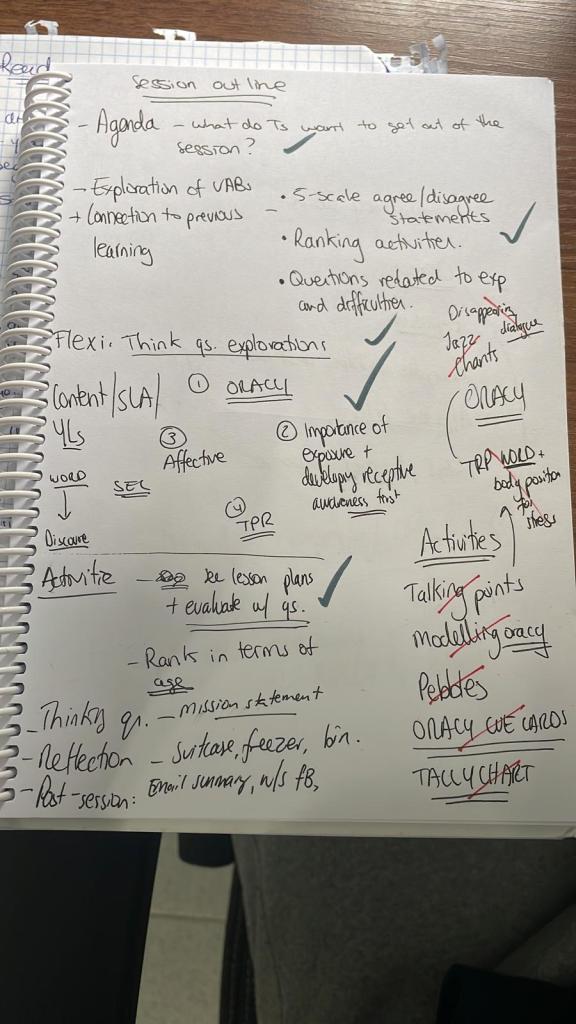 Session outline
- Agenda - what do Ts want to get out of the
session?
- Exploration of VABs
+ Connection to previous
learning
- • 5-scale agree/disagree
statements
• Ranking activities.
• Questions related to exp
and difficulties.
Flexi. Think qs. explorations
Content/SLA/
YLs
WORD
Discourse
SEL
① ORACY
③
Affective
② Importance of
exposure +
developy receptive
awareness first
④
TPR
Disappearing
dialogue
Jazz
Chants
ORACY
TRP WORD +
body position
for
stress
Activitie - see lesson plans
+ evaluate w/ qs.
- Rank in terms of
age
- Thinky qn. - mission statement
- Reflection - Suitcase, freezer, bin.
- Post-session: Email summary, w/s fB,
Activities
Talking points
Modelling oracy
Pebbles
ORACY CUE CARDS
TALLY CHART
Read